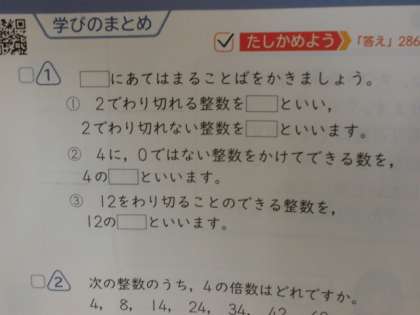 学びのまとめ
たしかめよう 「答え」286
1 □にあてはまることばをかきましょう。
① 2でわり切れる整数を□といい,
2でわり切れない整数を□といいます。
② 4に,0ではない整数をかけてできる数を,
4の□といいます。
③ 12をわり切ることのできる整数を,
12の□といいます。
2 次の整数のうち,4の倍数はどれですか。
4, 8, 14, 24, 34, 42,